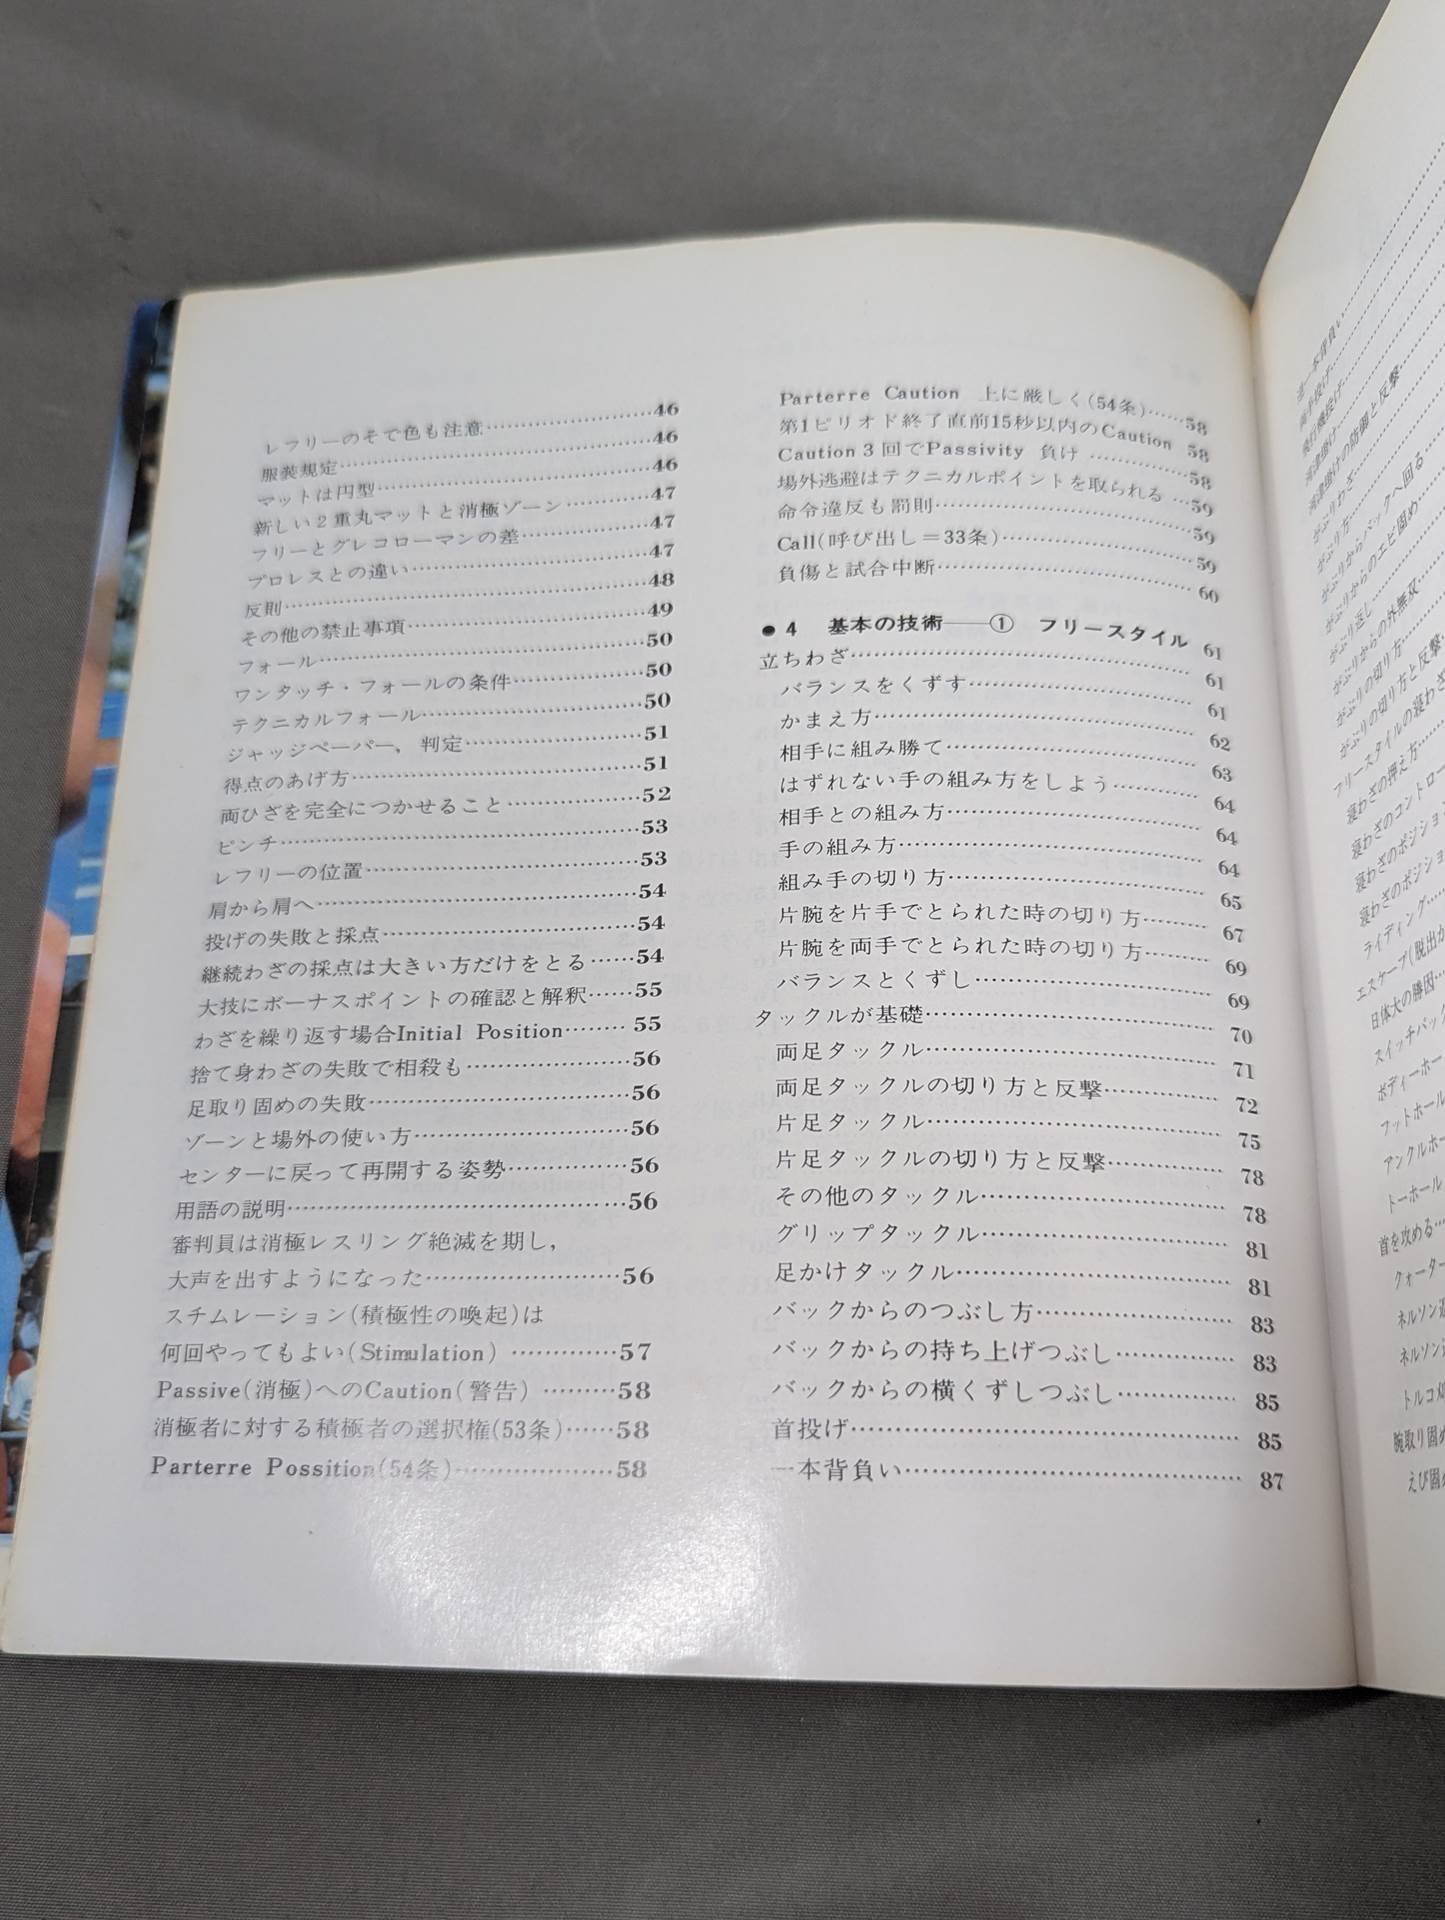 レフリーのそで色も注意……………46
服装規定……………………………46
マットは円型………………………46
新しい2重丸マットと消極ゾーン……47
フリーとグレコローマンの差…………47
プロレスとの違い……………………47
反則…………………………………48
その他の禁止事項……………………49
フォール……………………………50
ワンタッチ・フォールの条件…………50
テクニカルフォール…………………50
ジャッジペーパー，判定……………51
得点のあげ方………………………51
両ひざを完全につかせること…………52
ピンチ………………………………53
レフリーの位置……………………53
肩から肩へ…………………………54
投げの失敗と採点……………………54
継続わざの採点は大きい方だけをとる……54
大技にボーナスポイントの確認と解釈……55
わざを繰り返す場合Initial Position………55
捨て身わざの失敗で相殺も……………56
足取り固めの失敗……………………56
ゾーンと場外の使い方………………56
センターに戻って再開する姿勢…………56
用語の説明…………………………56
審判員は消極レスリング絶滅を期し，
大声を出すようになった………………56
スチムレーション(積極性の喚起)は
何回やってもよい(Stimulation)…………57
Passive(消極)へのCaution(警告)………58
消極者に対する積極者の選択権(53条)……58
Parterre Possition(54条)………………58
Parterre Caution 上に厳しく(54条)……58
第1ピリオド終了直前15秒以内のCaution 58
Caution 3回でPassivity 負け…………58
場外逃避はテクニカルポイントを取られる…59
命令違反も罰則……………………59
Call(呼び出し＝33条)………………59
負傷と試合中断……………………60
●4 基本の技術——① フリースタイル 61
立ちわざ……………………………61
バランスをくずす……………………61
かまえ方……………………………62
相手に組み勝て……………………63
はずれない手の組み方をしよう………64
相手との組み方……………………64
手の組み方…………………………64
組み手の切り方……………………65
片腕を片手でとられた時の切り方……67
片腕を両手でとられた時の切り方……69
バランスとくずし……………………69
タックルが基礎……………………70
両足タックル………………………71
両足タックルの切り方と反撃…………72
片足タックル………………………75
片足タックルの切り方と反撃…………78
その他のタックル……………………78
グリップタックル……………………81
足かけタックル……………………81
バックからのつぶし方………………83
バックからの持ち上げつぶし…………83
バックからの横くずしつぶし…………85
首投げ………………………………85
一本背負い…………………………87
がぶりわざ
がぶり方
がぶりからバックへ回る
がぶりからのエビ固め
がぶり返し
がぶりからの外無双
がぶりの切り方
がぶりの切り方と反撃
フリースタイルの寝わざ
寝わざの押え方
寝わざのコントロー
寝わざのポジショ
寝わざのポジショ
ライディング
エスケープ(脱出
日体大の勝因
スイッチバック
ボディーホー
フットホール
アンクルホー
トーホール
首を攻める
クォーター
ネルソン
ネルソン
トルコ
腕取り固め
えび固め